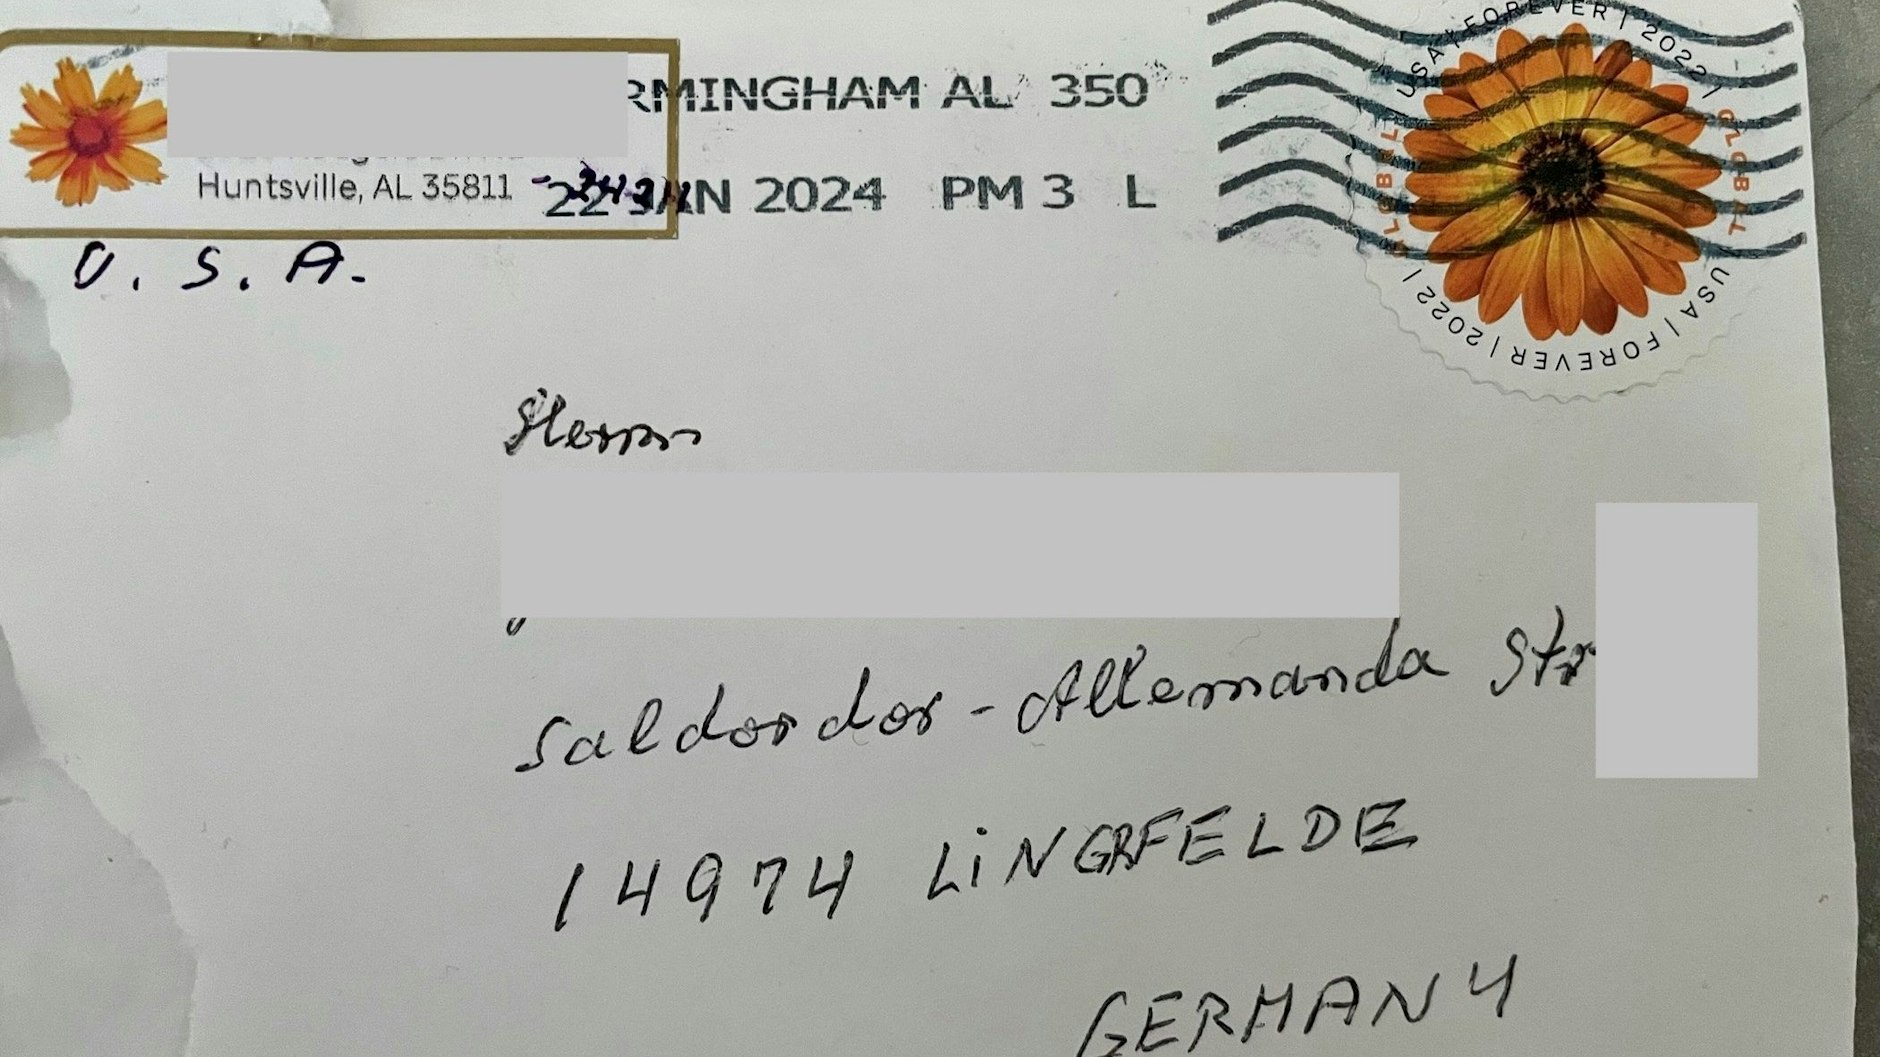 RMINGHAM AL 350
Huntsville, AL 35811
22 JAN 2024 PM 3 L
U. S. A.
USA | FOREVER | 2022 |
GLOBAL
USA | FOREVER | 2022 |
GLOBAL
Herrn
Saldordor-Allemanda Str
14974 LiNGRFELDE
GERMANY